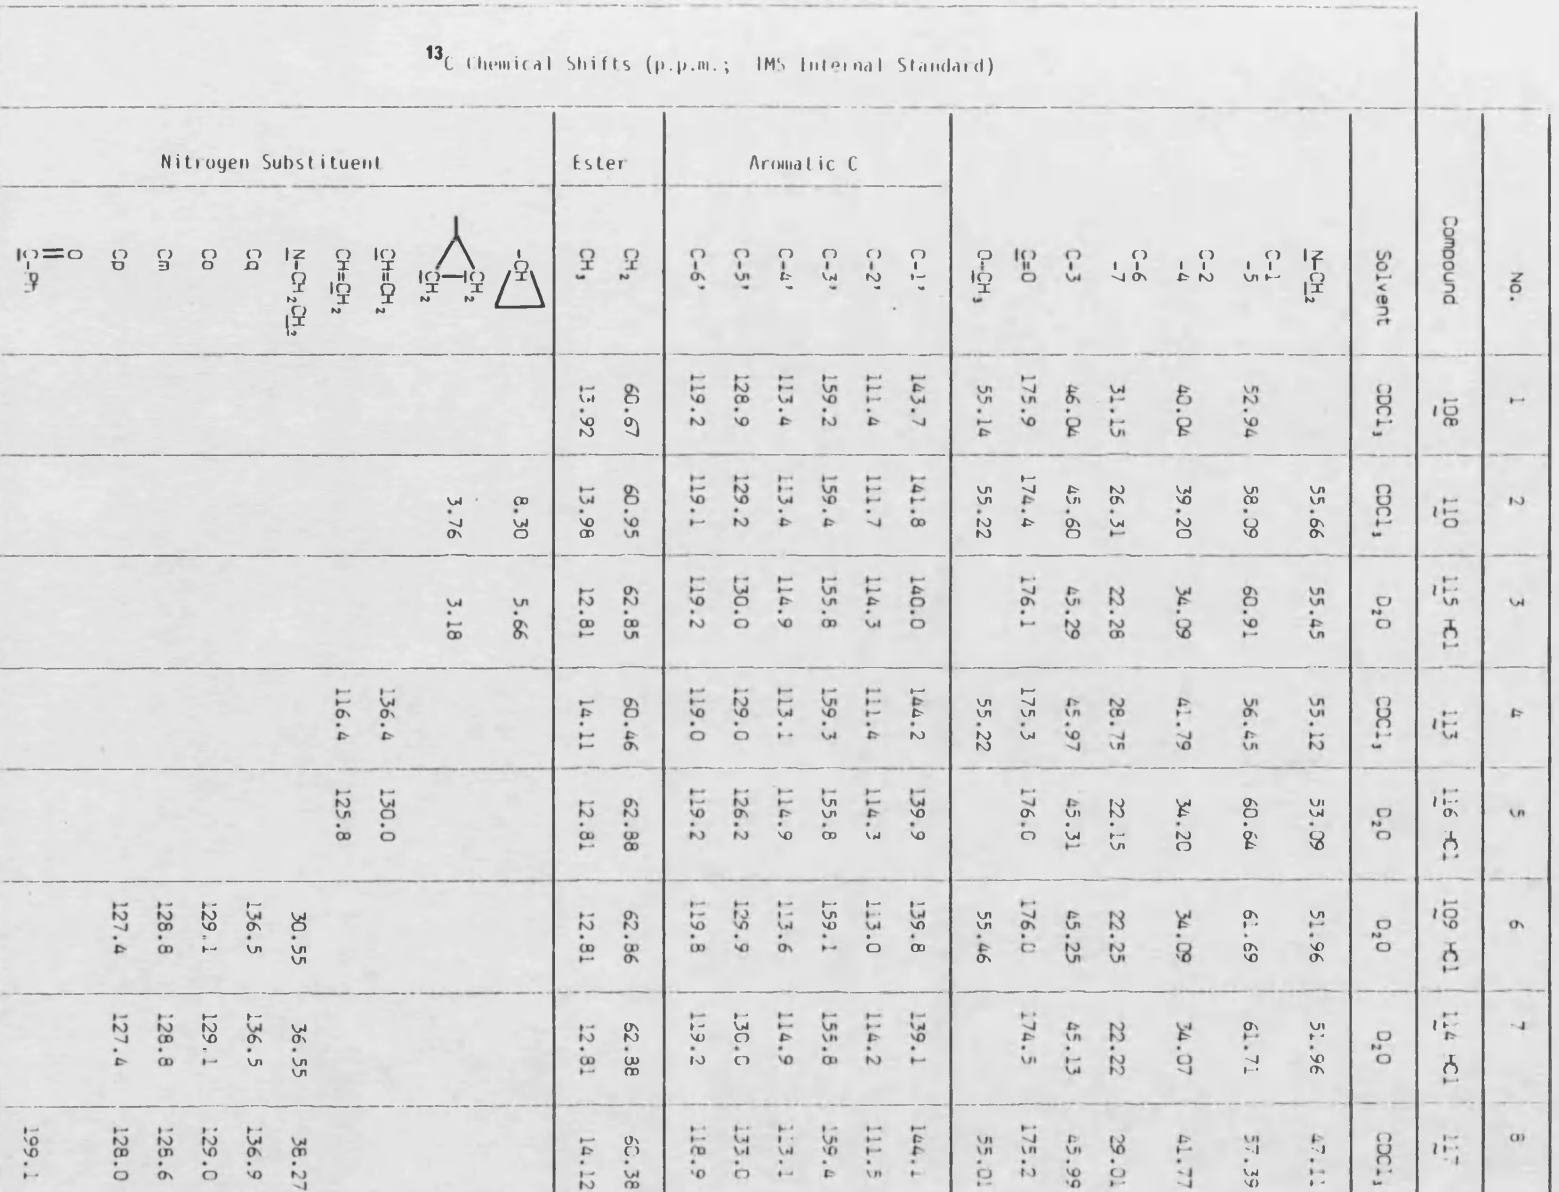 ¹³C Chemical Shifts (p.p.m.; TMS Internal Standard)
No. 1 2 3 4 5 6 7 8
Compound 108 110 115 HCl 113 116 HCl 109 HCl 114 HCl 117
Solvent CDCl₃ CDCl₃ D₂O CDCl₃ D₂O D₂O D₂O CDCl₃
N-CH₂ 55.66 55.45 55.12 53.09 51.96 51.96 47.11
C-1
-5 52.94 58.09 60.91 56.45 60.64 61.69 61.71 57.39
C-2
-4 40.04 39.20 34.09 41.79 34.20 34.09 34.07 41.77
C-6
-7 31.15 26.31 22.28 28.75 22.15 22.25 22.22 29.01
C-3 46.04 45.60 45.29 45.97 45.31 45.25 45.13 45.99
C=O 175.9 174.4 176.1 175.3 176.0 176.0 174.5 175.2
O-CH₃ 55.14 55.22 55.22 55.46 55.01
Aromatic C
C-1' 143.7 141.8 140.0 144.2 139.9 139.8 139.1 144.1
C-2' 111.4 111.7 114.3 111.4 114.3 113.0 114.2 111.5
C-3' 159.2 159.4 155.8 159.3 155.8 159.1 155.8 159.4
C-4' 113.4 113.4 114.9 113.1 114.9 113.6 114.9 113.1
C-5' 128.9 129.2 130.0 129.0 126.2 129.9 130.0 133.0
C-6' 119.2 119.1 119.2 119.0 119.2 119.8 119.2 118.9
Ester
CH₂ 60.67 60.95 62.85 60.46 62.88 62.86 62.38 60.38
CH₃ 13.92 13.98 12.81 14.11 12.81 12.81 12.81 14.12
Nitrogen Substituent
-CH 8.30 5.66
CH₂
CH₂ 3.76 3.18
CH=CH₂ 136.4 130.0
CH=CH₂ 116.4 125.8
N-CH₂CH₂ 30.55 36.55 38.27
Cq 136.5 136.5 136.9
Co 129.1 129.1 129.0
Cm 128.8 128.8 128.6
Cp 127.4 127.4 128.0
O
C-Ph 199.1